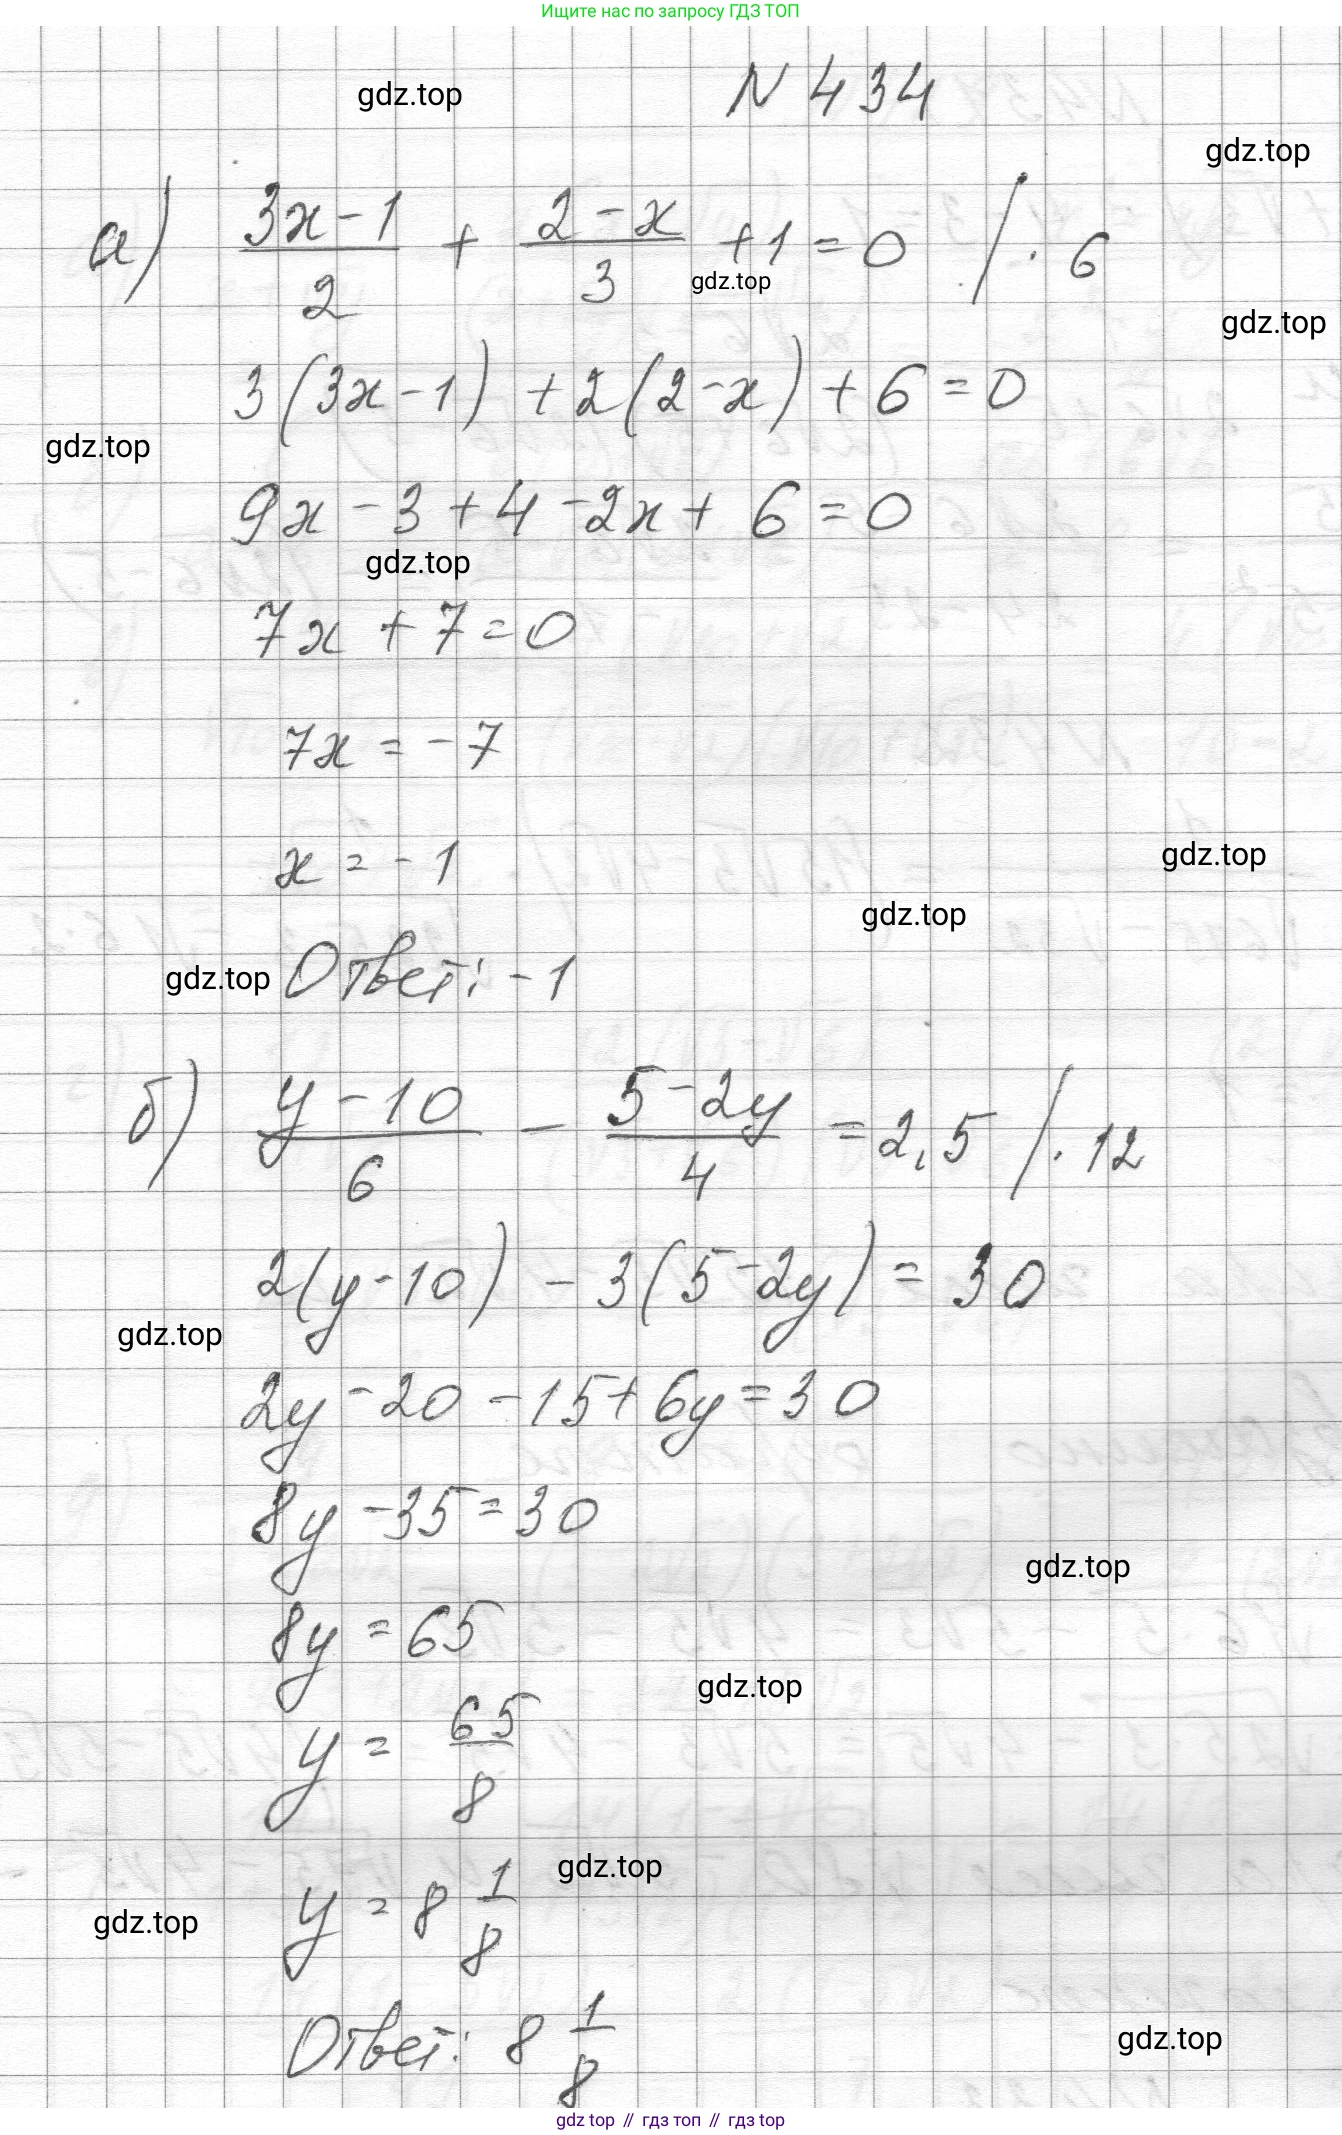 Ищите нас по запросу ГДЗ ТОП
N 434
gdz.top
gdz.top
а) (3x-1)/2 + (2-x)/3 + 1 = 0 / · 6
gdz.top
gdz.top
3(3x-1) + 2(2-x) + 6 = 0
gdz.top
9x - 3 + 4 - 2x + 6 = 0
gdz.top
7x + 7 = 0
7x = -7
x = -1
gdz.top
gdz.top
gdz.top
Ответ: -1
б) (y-10)/6 - (5-2y)/4 = 2,5 / · 12
2(y-10) - 3(5-2y) = 30
gdz.top
2y - 20 - 15 + 6y = 30
8y - 35 = 30
gdz.top
8y = 65
gdz.top
y = 65/8
gdz.top
y = 8 1/8
gdz.top
Ответ: 8 1/8
gdz.top
gdz top // гдз топ // гдз top